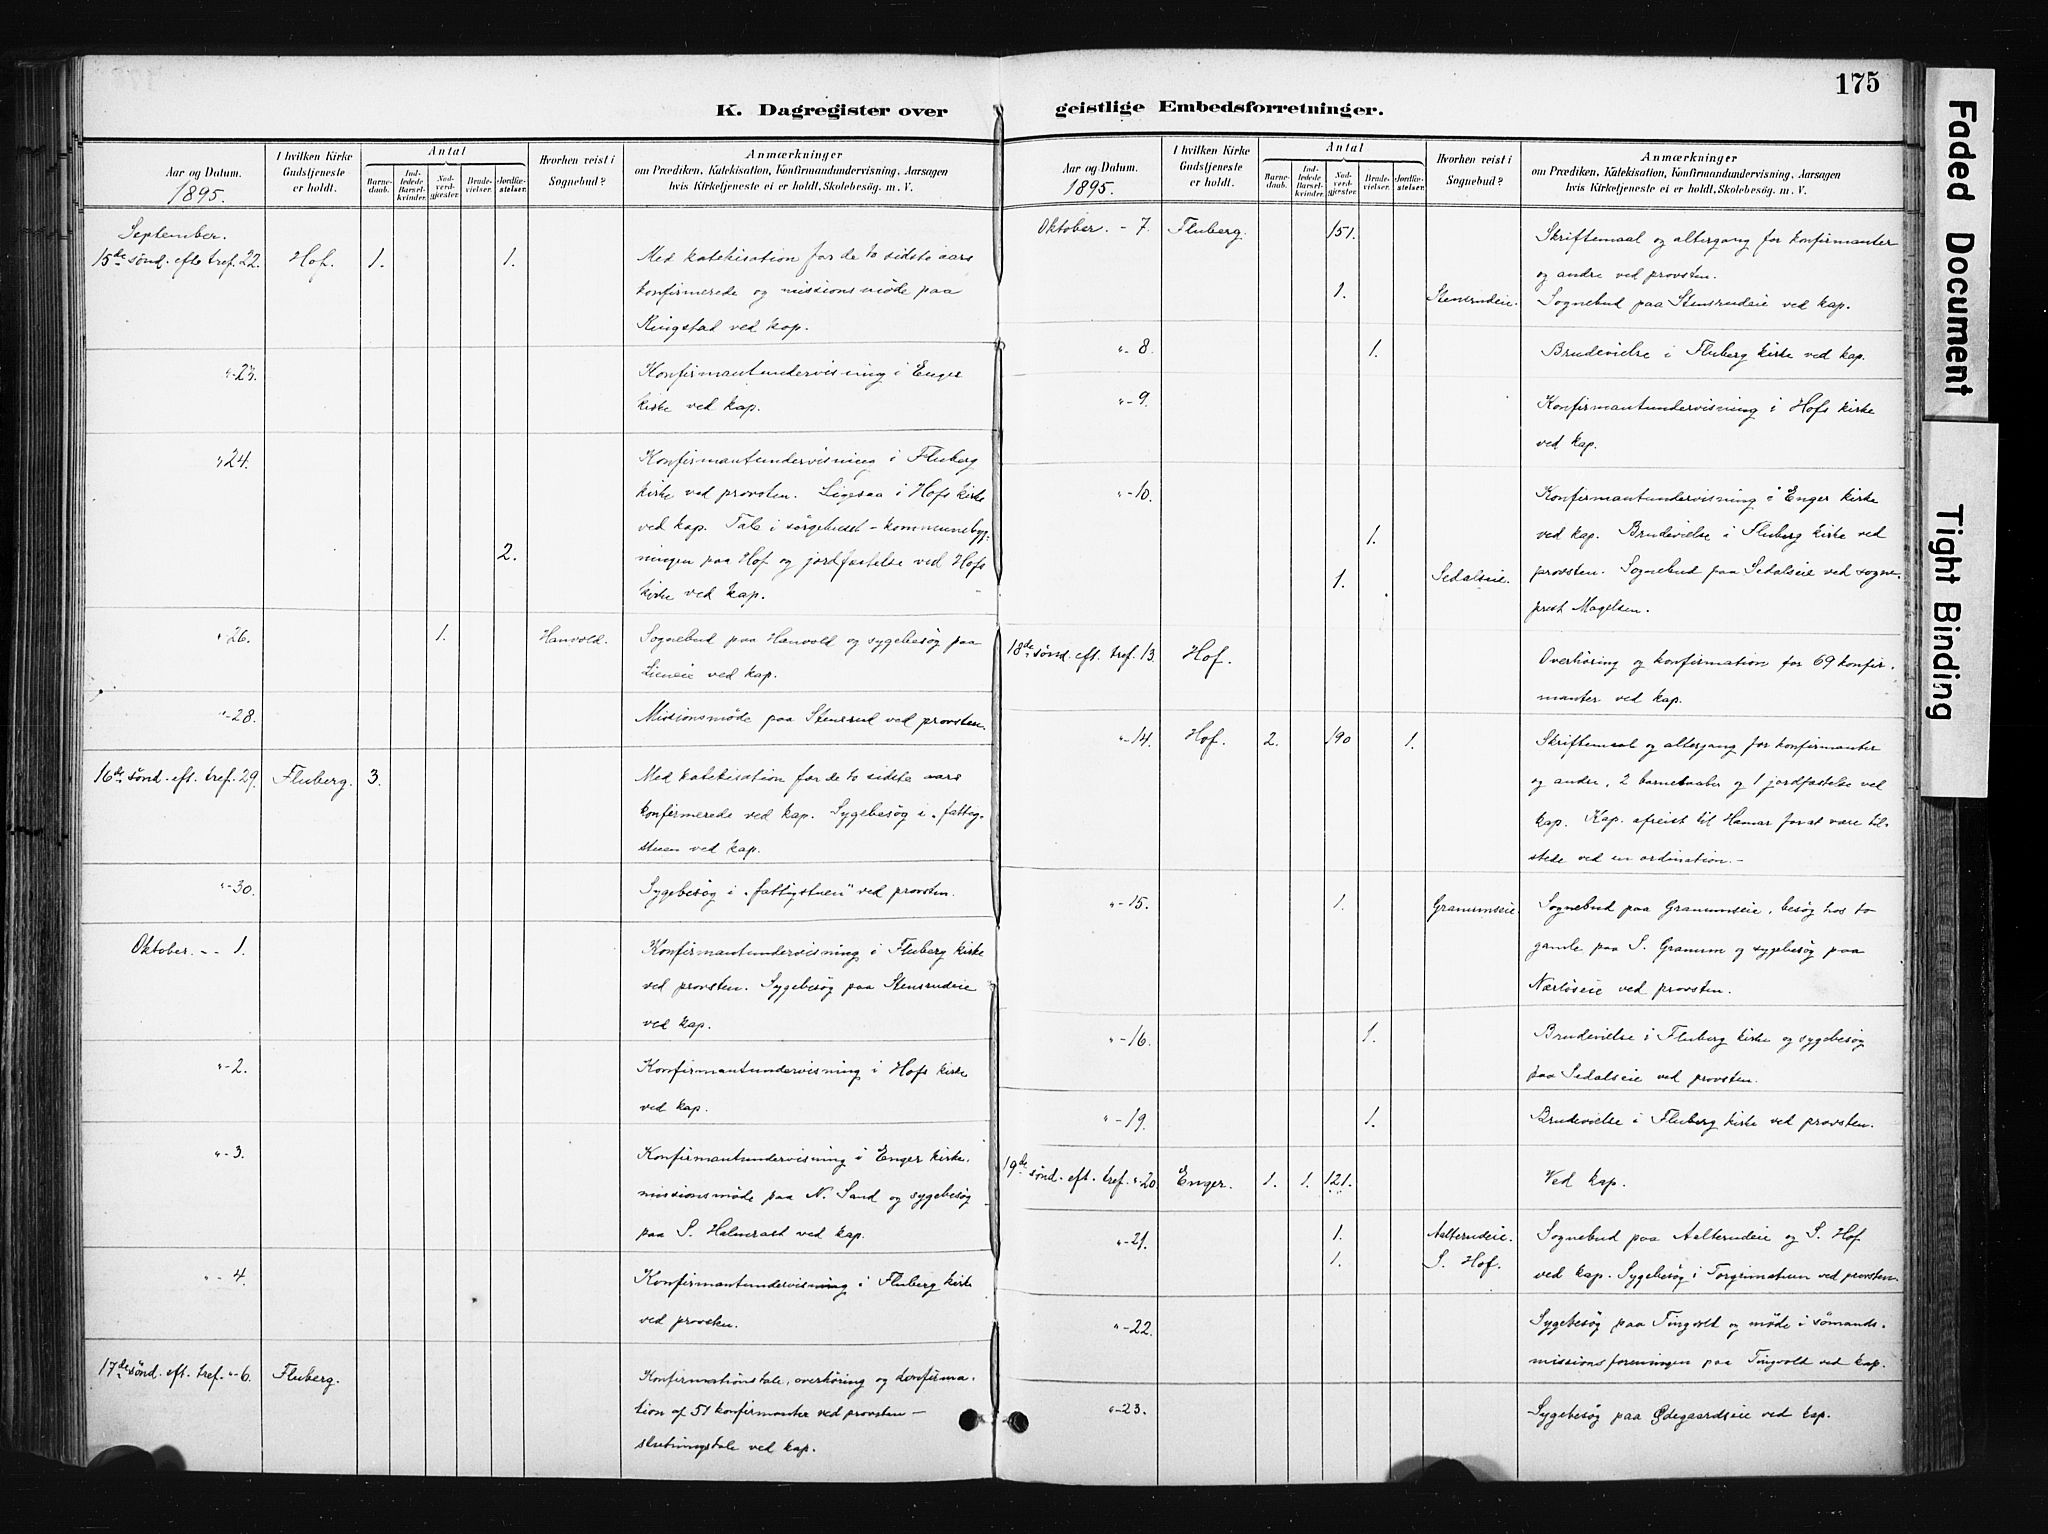 175
K. Dagregister over geistlige Embedsforretninger.
Faded Document
Tight Binding
Aar og Datum.
1895.
I hvilken Kirke
Gudstjeneste
er holdt.
Antal
Barne-
daab.
Ind-
ledede
Barsel-
kvinder.
Nad-
verd-
gjester.
Brude-
vielser.
Jordfæ-
stelser.
Hvorhen reist i
Sognebud?
Anmærkninger
om Prædiken, Katekisation, Konfirmandundervisning, Aarsagen
hvis Kirketjeneste ei er holdt, Skolebesøg. m. V.
September.
15de sönd. efte tref. 22. Hof. 1. 1. Med katekisation for de to sidste aars
konfirmerede og missionsmöde paa
Ringstad ved kap.
"-23. Konfirmantundervisning i Enger
kirke ved kap.
"24. Konfirmantundervisning i Fluberg
kirke ved provsten. Ligesaa i Hofs kirke
ved kap. Tale i sörgehuset - kommunebyg-
2. ningen paa Hof og jordfæstelse ved Hofs
kirke ved kap.
"-26. 1. Hanvold. Sognebud paa Hanvold og sygebesög paa
Lieneie ved kap.
"-28. Missionsmöde paa Stensrud ved provsten.
16de sönd. eft. tref. 29. Fluberg. 3. Med katekisation for de to sidste aars
konfirmerede ved kap. Sygebesög i "fattig-
stuen ved kap.
"-30. Sygebesög i "fattigstuen" ved provsten.
Oktober. -- 1. Konfirmantundervisning i Fluberg kirke
ved provsten. Sygebesög paa Stensrudeie
ved kap.
"-2. Konfirmantundervisning i Hofs kirke
ved kap.
"-3. Konfirmantundervisning i Enger kirke.
missionsmöde paa N. Sand og sygebesög
paa S. Halmrast ved kap.
"-4. Konfirmantundervisning i Fluberg kirke
ved provsten.
17de sönd. eft. tref. "-6. Fluberg. Konfirmationstale, overhöring og konfirma-
tion af 51 konfirmanter ved provsten -
slutningstale ved kap.
Aar og Datum.
1895.
I hvilken Kirke
Gudstjeneste
er holdt.
Antal
Barne-
daab.
Ind-
ledede
Barsel-
kvinder.
Nad-
verd-
gjester.
Brude-
vielser.
Jordfæ-
stelser.
Hvorhen reist i
Sognebud?
Anmærkninger
om Prædiken, Katekisation, Konfirmandundervisning, Aarsagen
hvis Kirketjeneste ei er holdt, Skolebesøg. m. V.
Oktober. - 7. Fluberg. 151. Skriftemaal og altergang for konfirmanter
og andre ved provsten.
1. Stensrudeie. Sognebud paa Stensrudeie ved kap.
"-8. 1. Brudevielse i Fluberg kirke ved kap.
"-9. Konfirmantundervisning i Hofs kirke
ved kap.
"-10. Konfirmantundervisning i Enger kirke
1. ved kap. Brudevielse i Fluberg kirke ved
1. Sedalseie. provsten. Sognebud paa Sedalseie ved sogne-
prest Magelsen.
18de sönd. eft. tref. 13. Hof. Overhöring og konfirmation for 69 konfir-
manter ved kap.
"-14. Hof. 2. 190 1. Skriftemaal og altergang for konfirmanter
og andre, 2 barnebaaber og 1 jordfæstelse ved
kap. Kap. afreist til Hamar for at være til-
stede ved en ordination. -
"-15. 1. Granumseie. Sognebud paa Granumseie, besög hos to
gamle paa S. Granum og sygebesög paa
Nærlöseie ved provsten.
"-16. 1. Brudevielse i Fluberg kirke og sygebesög
paa Sedalseie ved provsten.
"-19. 1. Brudevielse i Fluberg kirke ved provsten.
19de sönd. eft. tref. "-20. Enger. 1. 1. 121. Ved kap.
"-21. 1. Aalterudeie. Sognebud paa Aalterudeie og S. Hof
1. S. Hof. ved kap. Sygebesög i Torgrimstuen ved provsten.
"-22. Sygebesög paa Tingvold og möde i sömands-
missionsforeningen paa Tingvold ved kap.
"-23. Sygebesög paa Ødegaardseie ved kap.